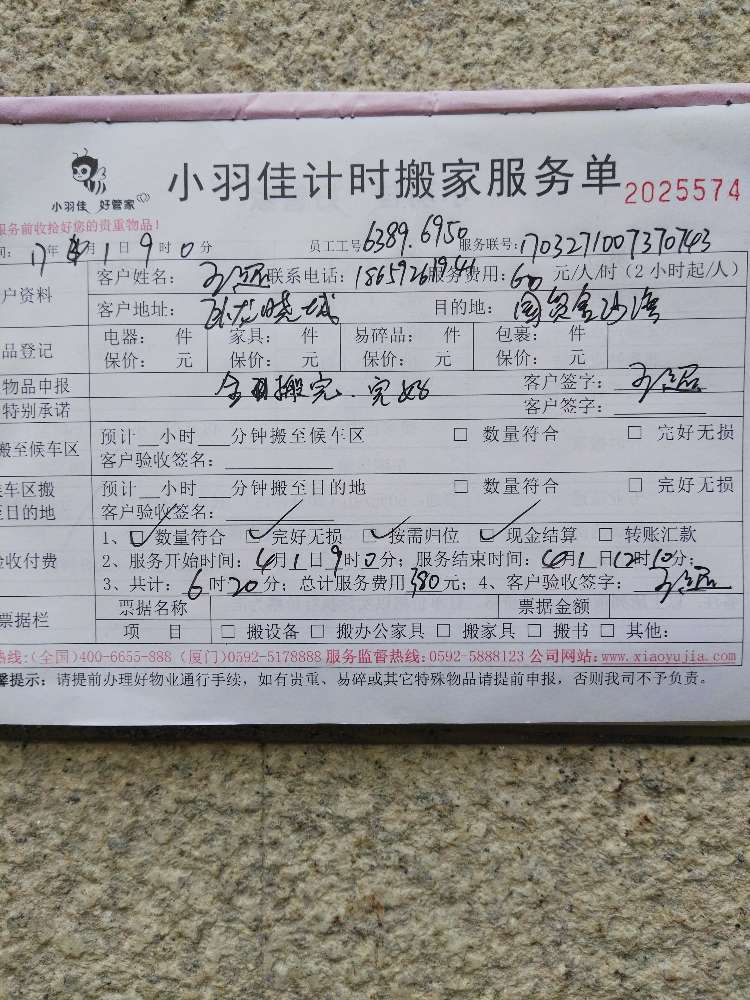 小羽佳 好管家
小羽佳计时搬家服务单 2025574
服务前收拾好您的贵重物品!
间: 17年 4月1日9时0分 员工工号 6389.6950 服务联号: 1703271007370743
户资料 客户姓名: 联系电话: 服务费用: 60 元/人/时(2小时起/人)
客户地址: 目的地: 国贸金沙湾
品登记 电器: 件 家具: 件 易碎品: 件 包裹: 件
保价: 元 保价: 元 保价: 元 保价: 元
物品申报 全部搬完、完好 客户签字:
特别承诺 客户签字:
搬至候车区 预计__小时___分钟搬至候车区 □ 数量符合 □ 完好无损
客户验收签名:
车区搬 预计__小时___分钟搬至目的地 □ 数量符合 □ 完好无损
至目的地 客户验收签名:
收付费 1、☑数量符合 ☑完好无损 ☑按需归位 ☑现金结算 □ 转账汇款
2、服务开始时间: 4月1日9时0分; 服务结束时间: 4月1日12时10分;
3、共计: 6时20分; 总计服务费用380元; 4、客户验收签字:
票据栏 票据名称 票据金额
项 目 □ 搬设备 □ 搬办公家具 □ 搬家具 □ 搬书 □ 其他:
热线:(全国)400-6655-888 (厦门)0592-5178888 服务监督热线:0592-5888123 公司网站:www.xiaoyujia.com
馨提示: 请提前办理好物业通行手续, 如有贵重、易碎或其它特殊物品请提前申报, 否则我司不予负责。